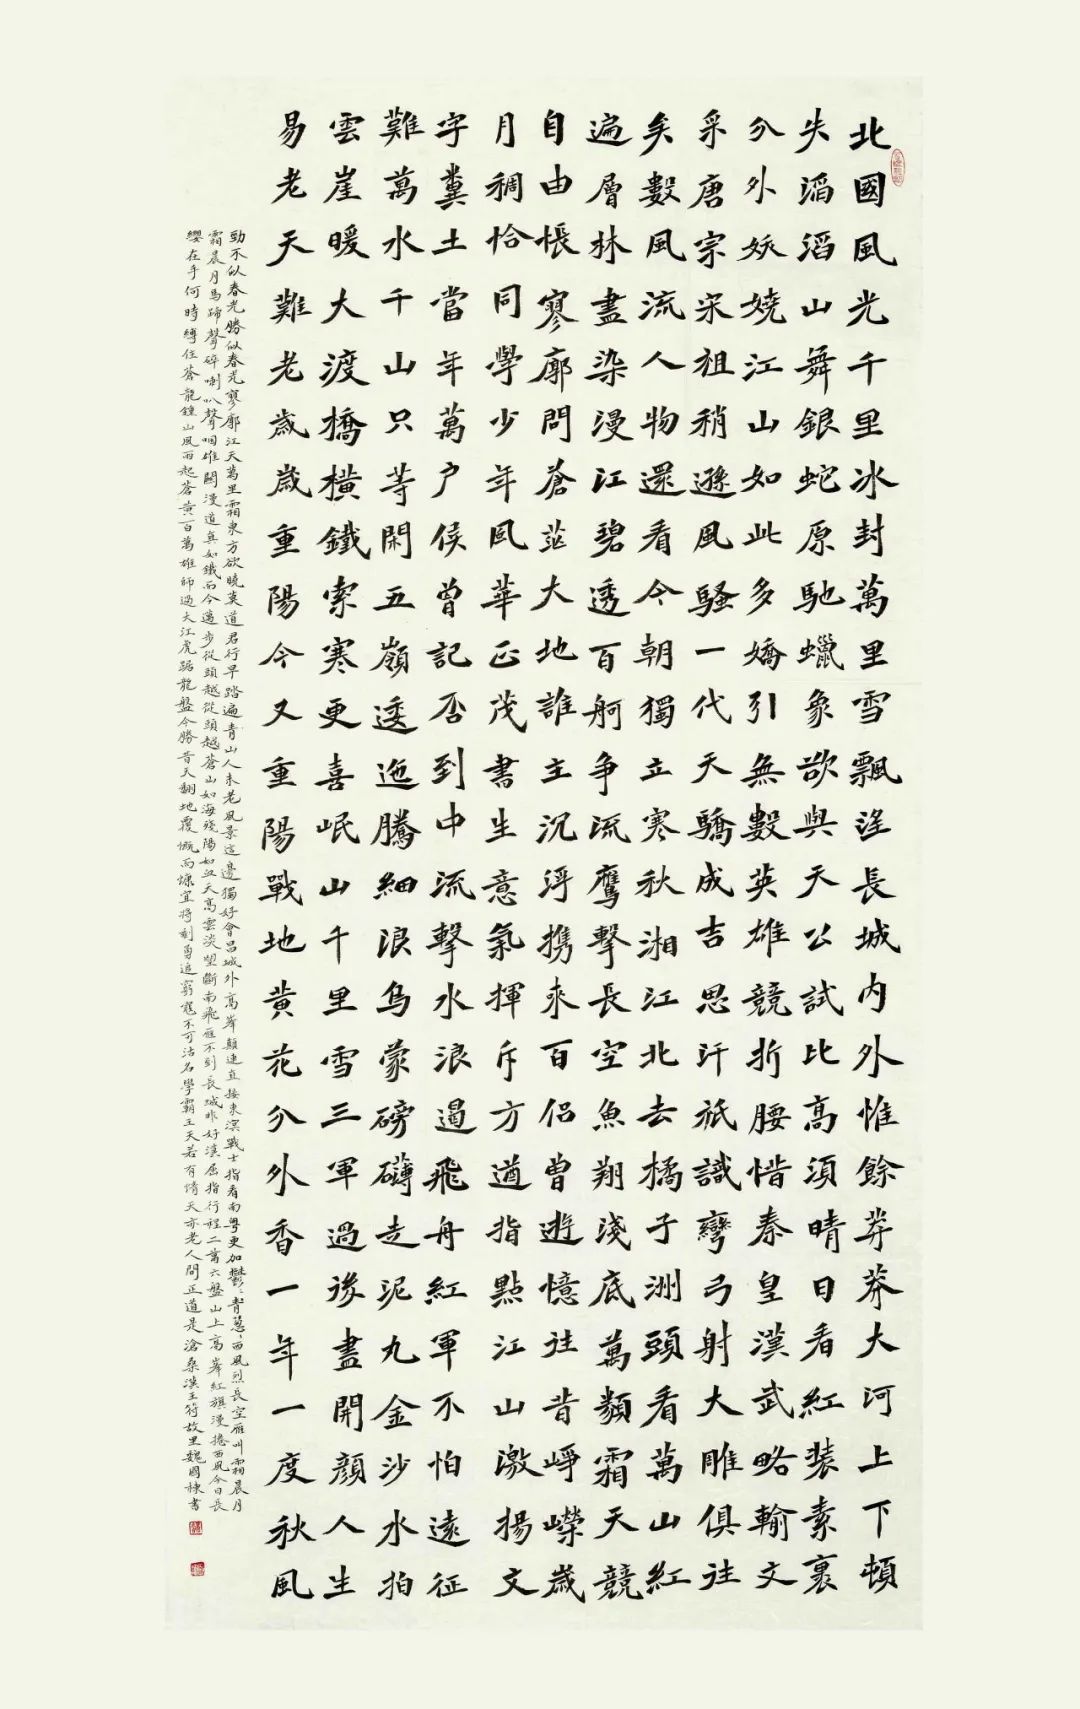 北國風光千里冰封萬里雪飄望長城内外惟餘莽莽大河上下頓
失滔滔山舞銀蛇原馳蠟象欲與天公試比高須晴日看紅裝素裹
分外妖嬈江山如此多嬌引無數英雄競折腰惜秦皇漢武略輸文
采唐宗宋祖稍遜風騷一代天驕成吉思汗祇識彎弓射大雕俱往
矣數風流人物還看今朝獨立寒秋湘江北去橘子洲頭看萬山紅
遍層林盡染漫江碧透百舸争流鷹擊長空魚翔淺底萬類霜天競
自由悵寥廓問蒼茫大地誰主沉浮携來百侣曾遊憶往昔崢嶸歲
月稠恰同學少年風華正茂書生意氣揮斥方遒指點江山激揚文
字糞土當年萬户侯曾記否到中流擊水浪遏飛舟紅軍不怕遠征
難萬水千山只等閑五嶺逶迤騰細浪烏蒙磅礴走泥丸金沙水拍
雲崖暖大渡橋橫鐵索寒更喜岷山千里雪三軍過後盡開顔人生
易老天難老歲歲重陽今又重陽戰地黄花分外香一年一度秋風
勁不似春光勝似春光寥廓江天萬里霜東方欲曉莫道君行早踏遍青山人未老風景這邊獨好會昌城外高峯顛連直接東溟戰士指看南粤更加鬱〻青蔥〻西風烈長空雁叫霜晨月
霜晨月馬蹄聲碎喇叭聲咽雄關漫道真如鐵而今邁步從頭越從頭越蒼山如海殘陽如血天高雲淡望斷南飛雁不到長城非好漢屈指行程二萬六盤山上高峯紅旗漫捲西風今日長
纓在手何時縛住蒼龍鍾山風雨起蒼黄百萬雄師過大江虎踞龍盤今勝昔天翻地覆慨而慷宜將剩勇追窮寇不可沽名學霸王天若有情天亦老人間正道是滄桑漢王符故里魏國棟書